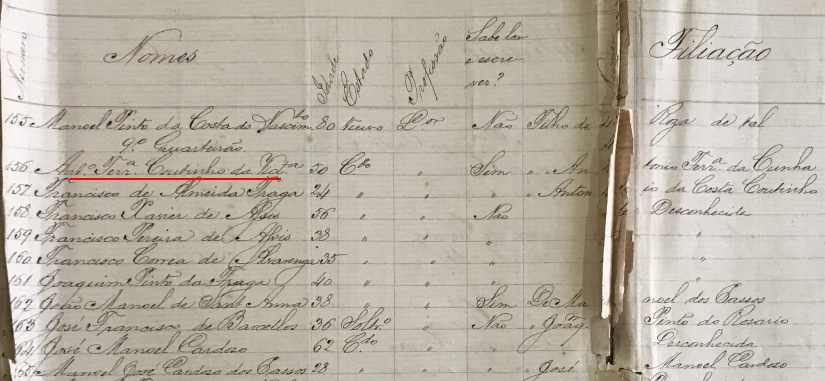 Numero Nomes Idade Estado Profissão Sabe ler e escrever? Filiação
155 Manoel Pinto da Costa do Nascimto 80 Viuvo Lor Não Filho de Roza de tal
9º Quarteirão
156 Anto Ferra Coutinho da 50 Cdo " Sim " Antonio Ferra da Cunha
157 Francisco de Almeida Fraga 24 " " " " Antonio da Costa Coutinho
158 Francisco Xavier de Assis 56 " " Não Desconhecido
159 Francisco Pereira de Assis 38 " " " "
160 Francisco Correa de Alvarenga 35 " " " "
161 Joaquim Pinto da Fraga 40 " " " "
162 João Manoel de Sant'Anna 38 " " Sim De Manoel dos Passos
163 José Francisco de Barcellos 36 Soltro " Não " Joaq. Pinto do Rosario
164 José Manoel Cardoso 62 Cdo " " Desconhecida
165 Manoel José Cardoso dos Passos 28 " " " José Manoel Cardoso